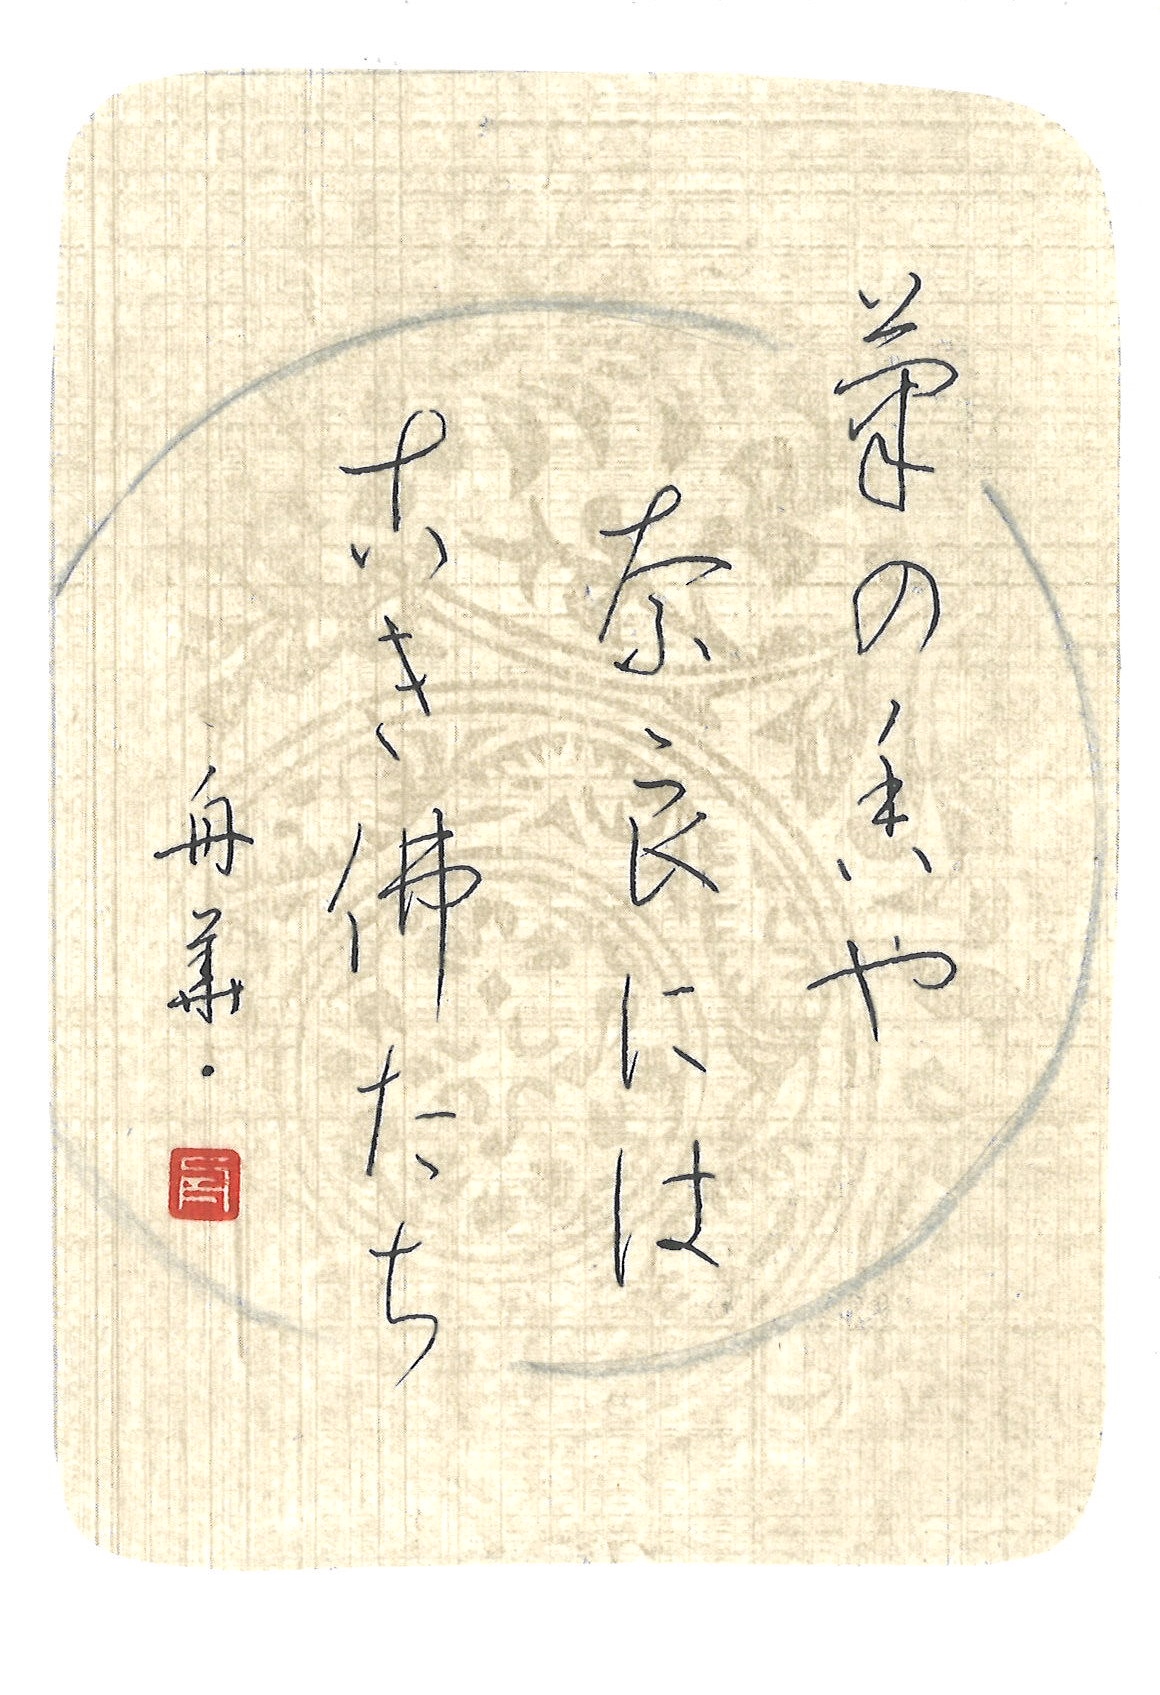 菊の香や
奈良には
古き佛たち
舟華.